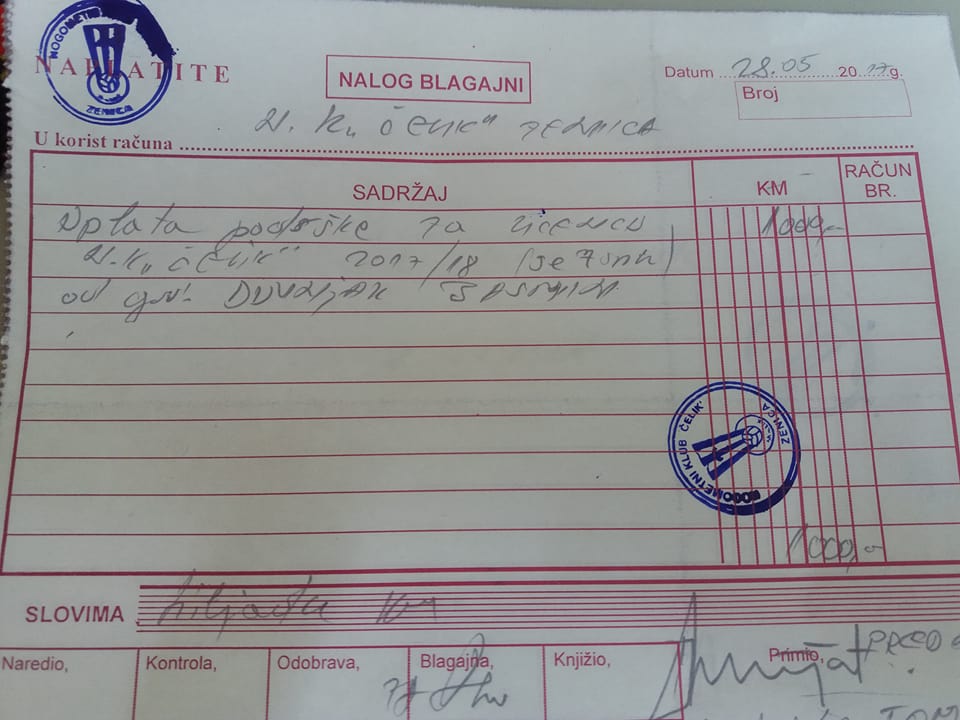 NOGOMETNI ZENICA
NAPLATITE
NALOG BLAGAJNI
Datum 28.05 2017.g.
Broj
U korist računa N.K „ČELIK" ZENICA
SADRŽAJ KM RAČUN BR.
Uplata podrške za licencu 1000,-
N.K „ČELIK" 2017/18 (sezonu)
od gosp. DUVNJAK JASMIN.
NOGOMETNI KLUB ČELIK ZENICA
1000,-
SLOVIMA hiljadu KM
Naredio, Kontrola, Odobrava, Blagajna, Knjižio, Primio,